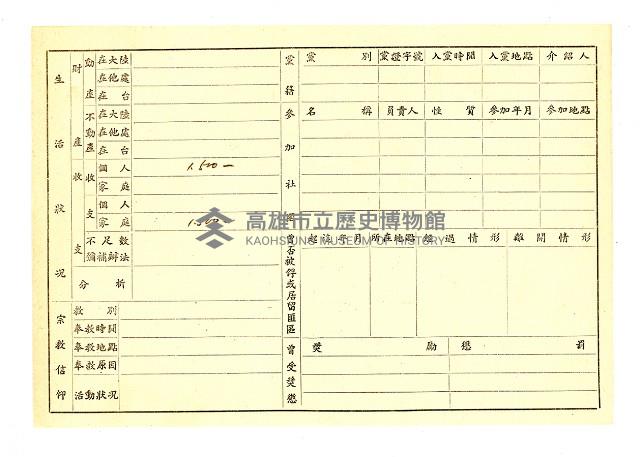 生活狀況
財產
動產
在大陸
在他處
在台
不動產
在大陸
在他處
在台
收支
收
個人 1.500—
家庭
支
個人
家庭
不足數
彌補辦法
分析
宗教信仰
教別
奉教時間
奉教地點
奉教原因
活動狀況
黨籍
黨別 黨證字號 入黨時間 入黨地點 介紹人
參加社團
名稱 負責人 性質 參加年月 參加地點
曾否被俘或居留匪區
起訖年月 所在地點 經過情形 離開情形
曾受獎懲
獎勵 懲罰
高雄市立歷史博物館
KAOHSIUNG MUSEUM OF HISTORY